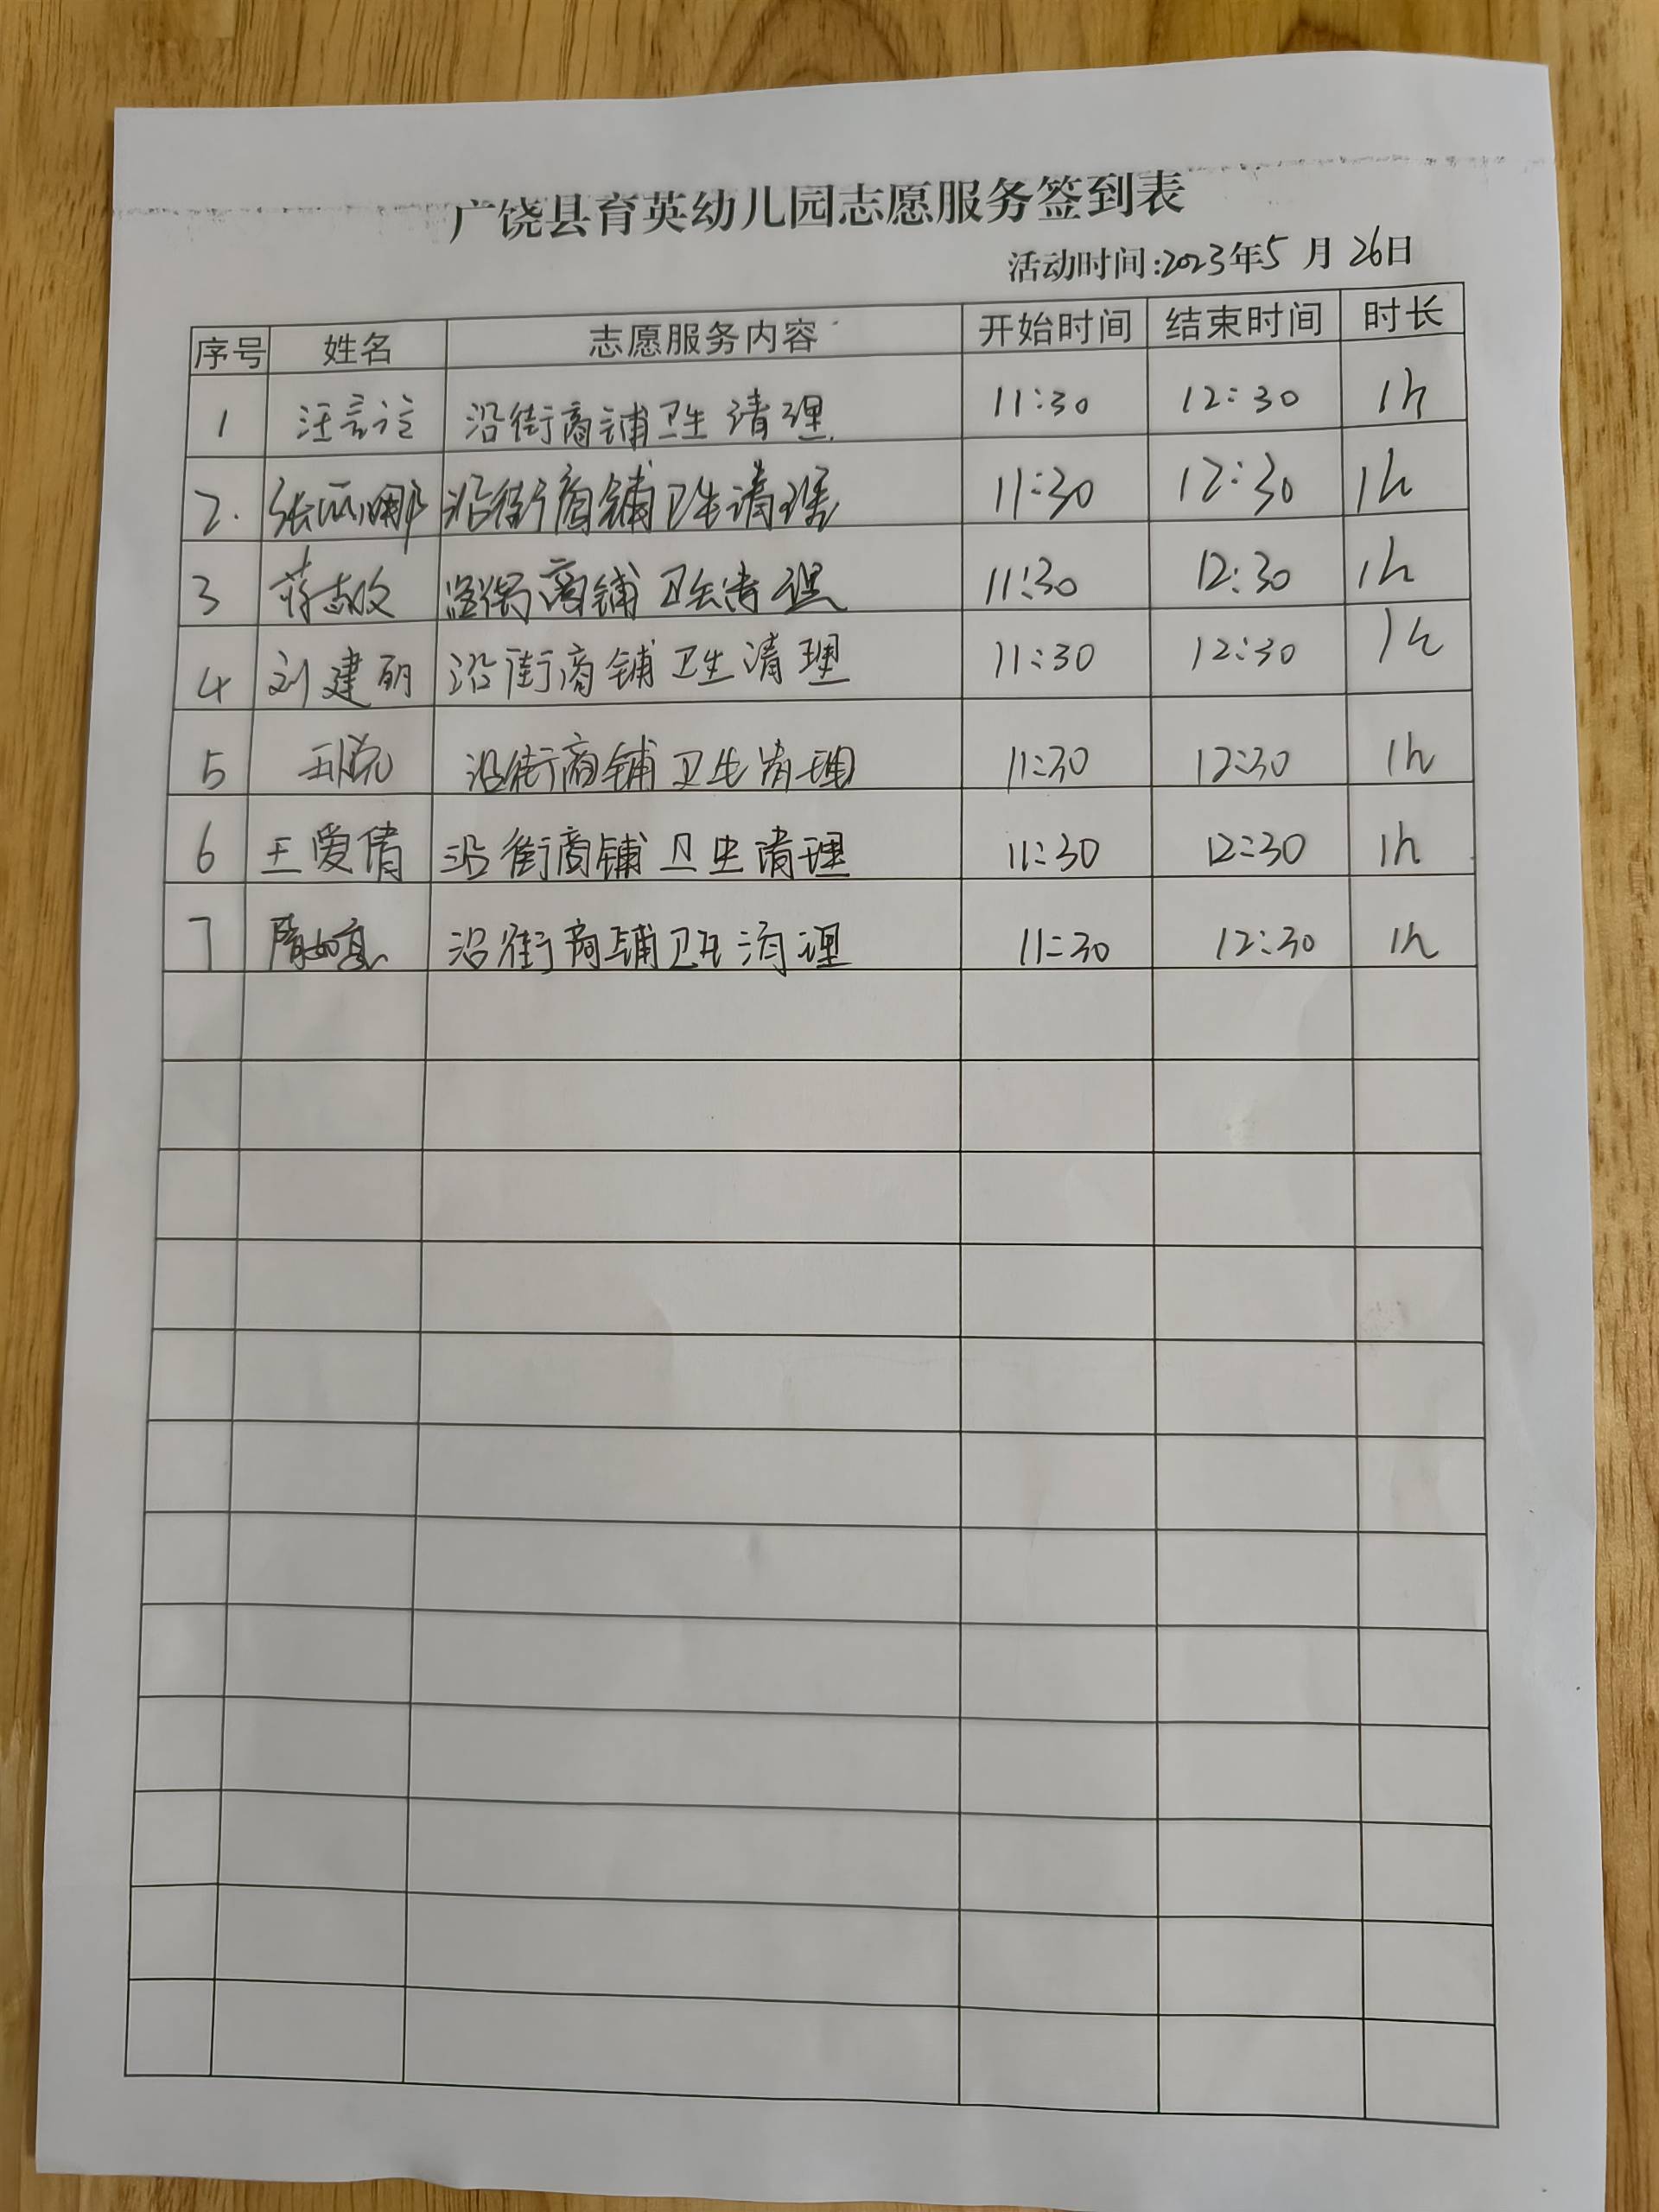 广饶县育英幼儿园志愿服务签到表
活动时间:2023年5月26日
序号 姓名 志愿服务内容 开始时间 结束时间 时长
1 汪言 沿街商铺卫生清理 11:30 12:30 1h
2. 张丽娜 沿街商铺卫生清理 11:30 12:30 1h
3 蒋志 沿街商铺卫生清理 11:30 12:30 1h
4 刘建 沿街商铺卫生清理 11:30 12:30 1h
5 王悦 沿街商铺卫生清理 11:30 12:30 1h
6 王爱倩 沿街商铺卫生清理 11:30 12:30 1h
7 隋如 沿街商铺卫生清理 11:30 12:30 1h